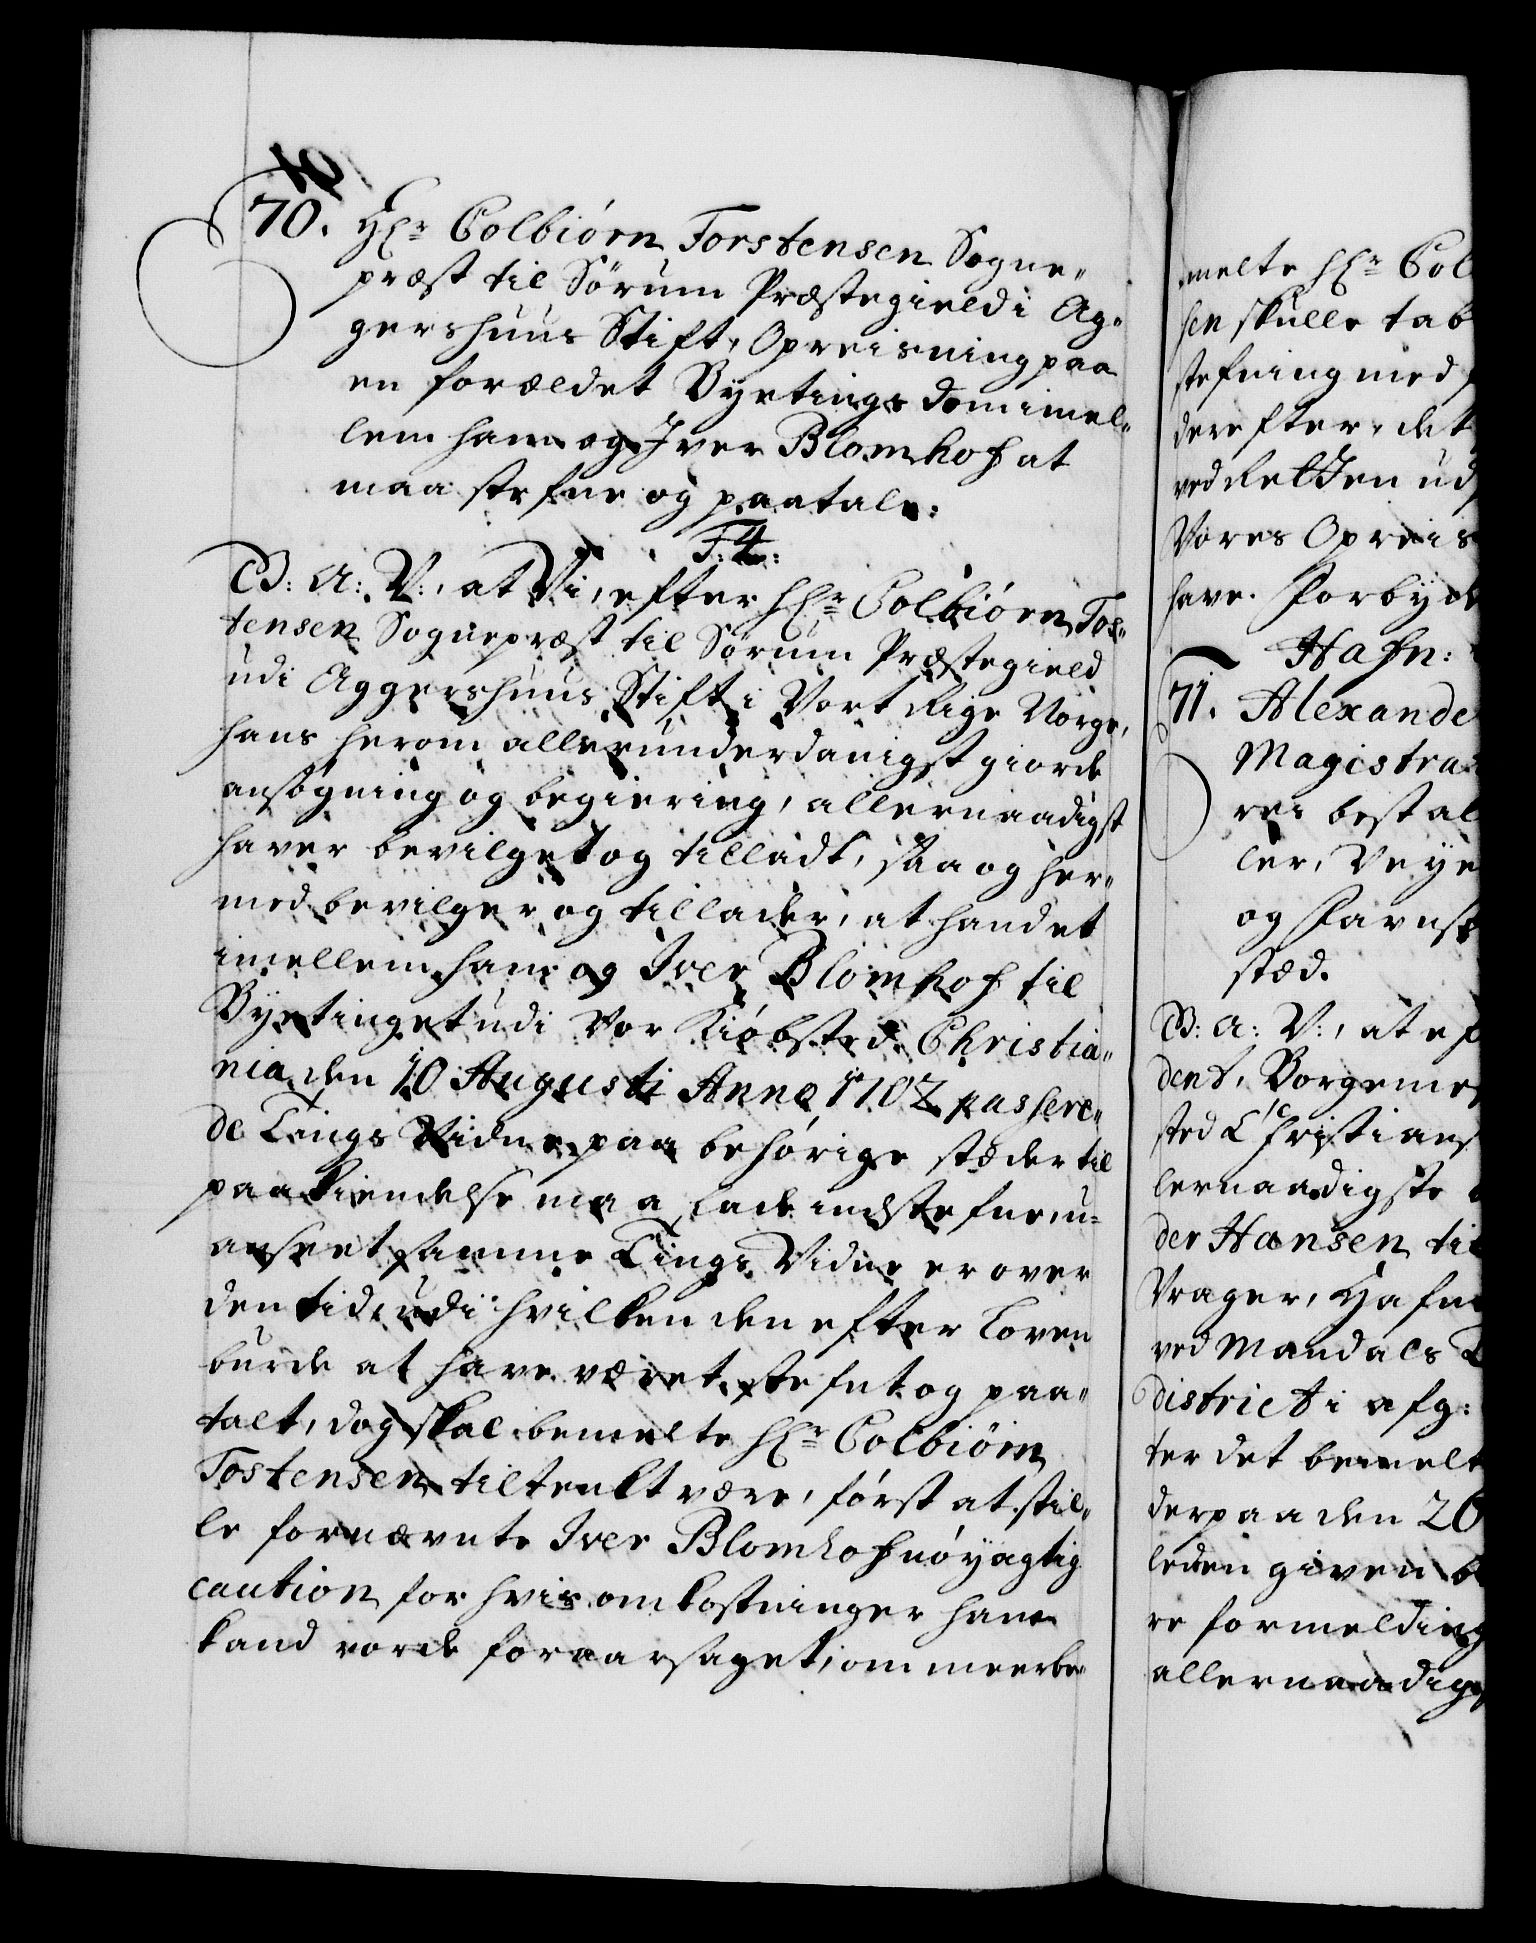 70. Hr. Colbiørn Torstensen Sogne„
præst til Sørum Præstegield i Ag„
gershuus Stift, Opreisning paa
en forældet Byetings dom imel„
lem ham og Iver Blomhof at
maa stefne og paatale.
F: 4:
C.V: A: V:, at Vi, efter Hr. Colbiørn Tos„
tensen Sognepræst til Sørum Præstegield
udi Aggershuus Stift i Vort Rige Norge,
hans herom allerunderdanigst giorde
ansøgning og begiering, allernaadigst
haver bevilget og tilladt, saa og her„
med bevilger og tillader, at hand et
imellem ham og Iver Blomhof til
Byetinget udi Vor Kiøbsted Christia„
nia den 10 Augusti Anno 1702 passere„
de Tings Vidne paa behørige stæder til
paakiendelse maa lade indstefne, u„
anseet samme Tings Vidne er over
den tid, udi hvilken den efter Loven
burde at have været stefnt og paa„
talt, dog skal bemelte Hr. Colbiørn
Tostensen tiltenkt være, først at stil„
le fornævnte Iver Blomhof nøyagtig
caution for hvis omkostninger ham
kand vorde foraarsaget, om meerbe„
melte Hr. Col
sen skulle tab
stefning med
derefter, det
ved Retten ud
Vores Opreis
have. Forbyde
Hafn:
71. Alexande
Magistra
res bestal
ler, Veye
og Favns
stæd.
C.V: A: V:, at ef
dent, Borgemes
sted Christians
lernaadigste
der Hansen til
Vrager, Hafne
ved Mandals
District i afg:
ter det bemelt
derpaa den 20
leden given be
re formelding
allernaadigs